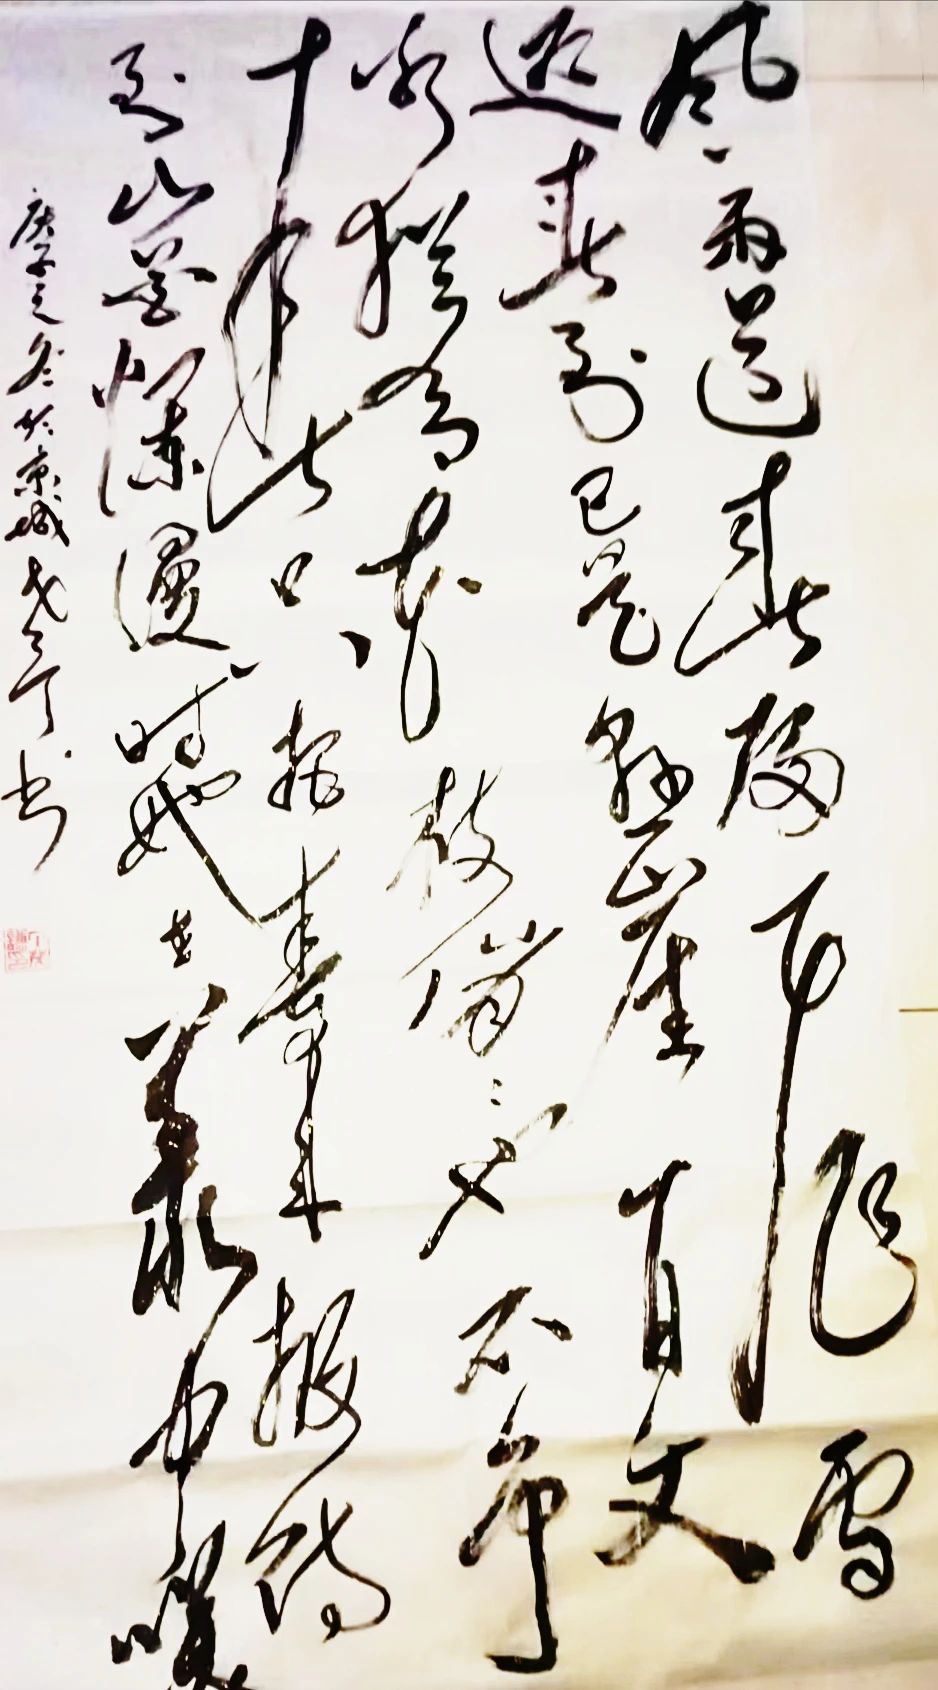 风雨送春归飞雪
迎春到已是悬崖百丈
冰犹有花枝俏俏也不争
春只把春来报待
到山花烂漫时她在丛中笑
庚子之冬於京城 书